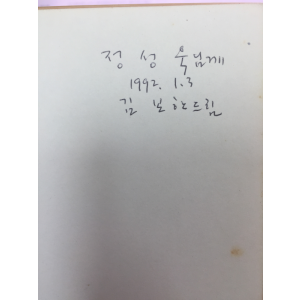 정성욱님께
1992. 1. 3
김보한드림